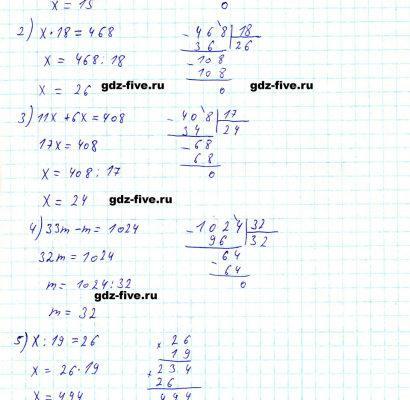 x = 13
0
2) x · 18 = 468
x = 468 : 18
x = 26
- 468 | 18
36 | 26
- 108
108
0
gdz-five.ru
gdz-five.ru
3) 11x + 6x = 408
17x = 408
x = 408 : 17
x = 24
- 408 | 17
34 | 24
- 68
68
0
gdz-five.ru
4) 33m - m = 1024
32m = 1024
m = 1024 : 32
m = 32
- 1024 | 32
96 | 32
- 64
64
0
gdz-five.ru
5) x : 19 = 26
x = 26 · 19
x = 494
× 26
19
+ 234
26
494